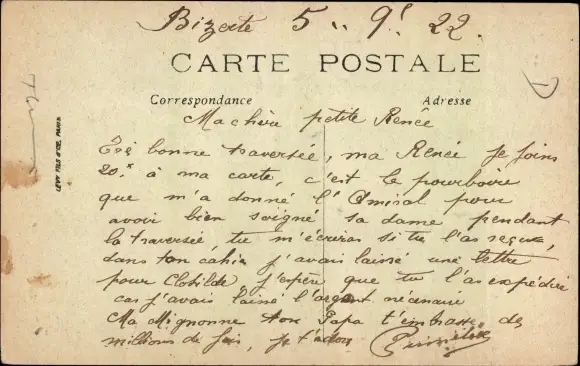 Bizerte 5 .. 9! 22.
CARTE POSTALE
Correspondance
Adresse
LEVY FILS & CIE, PARIS
Ma chère petite Renée
Très bonne traversée, ma Renée je joins
20.x à ma carte, c'est le pourboire
que m'a donné l'Amiral pour
avoir bien soigné sa dame pendant
la traversée, tu m'écriras si tu l'as reçue,
dans ton cahier j'avais laissé une lettre
pour Clotilde j'espère que tu l'as expédiée
car j'avais laissé l'argent nécessaire
Ma Mignonne ton Papa t'embrasse des
millions de fois, je t'adore